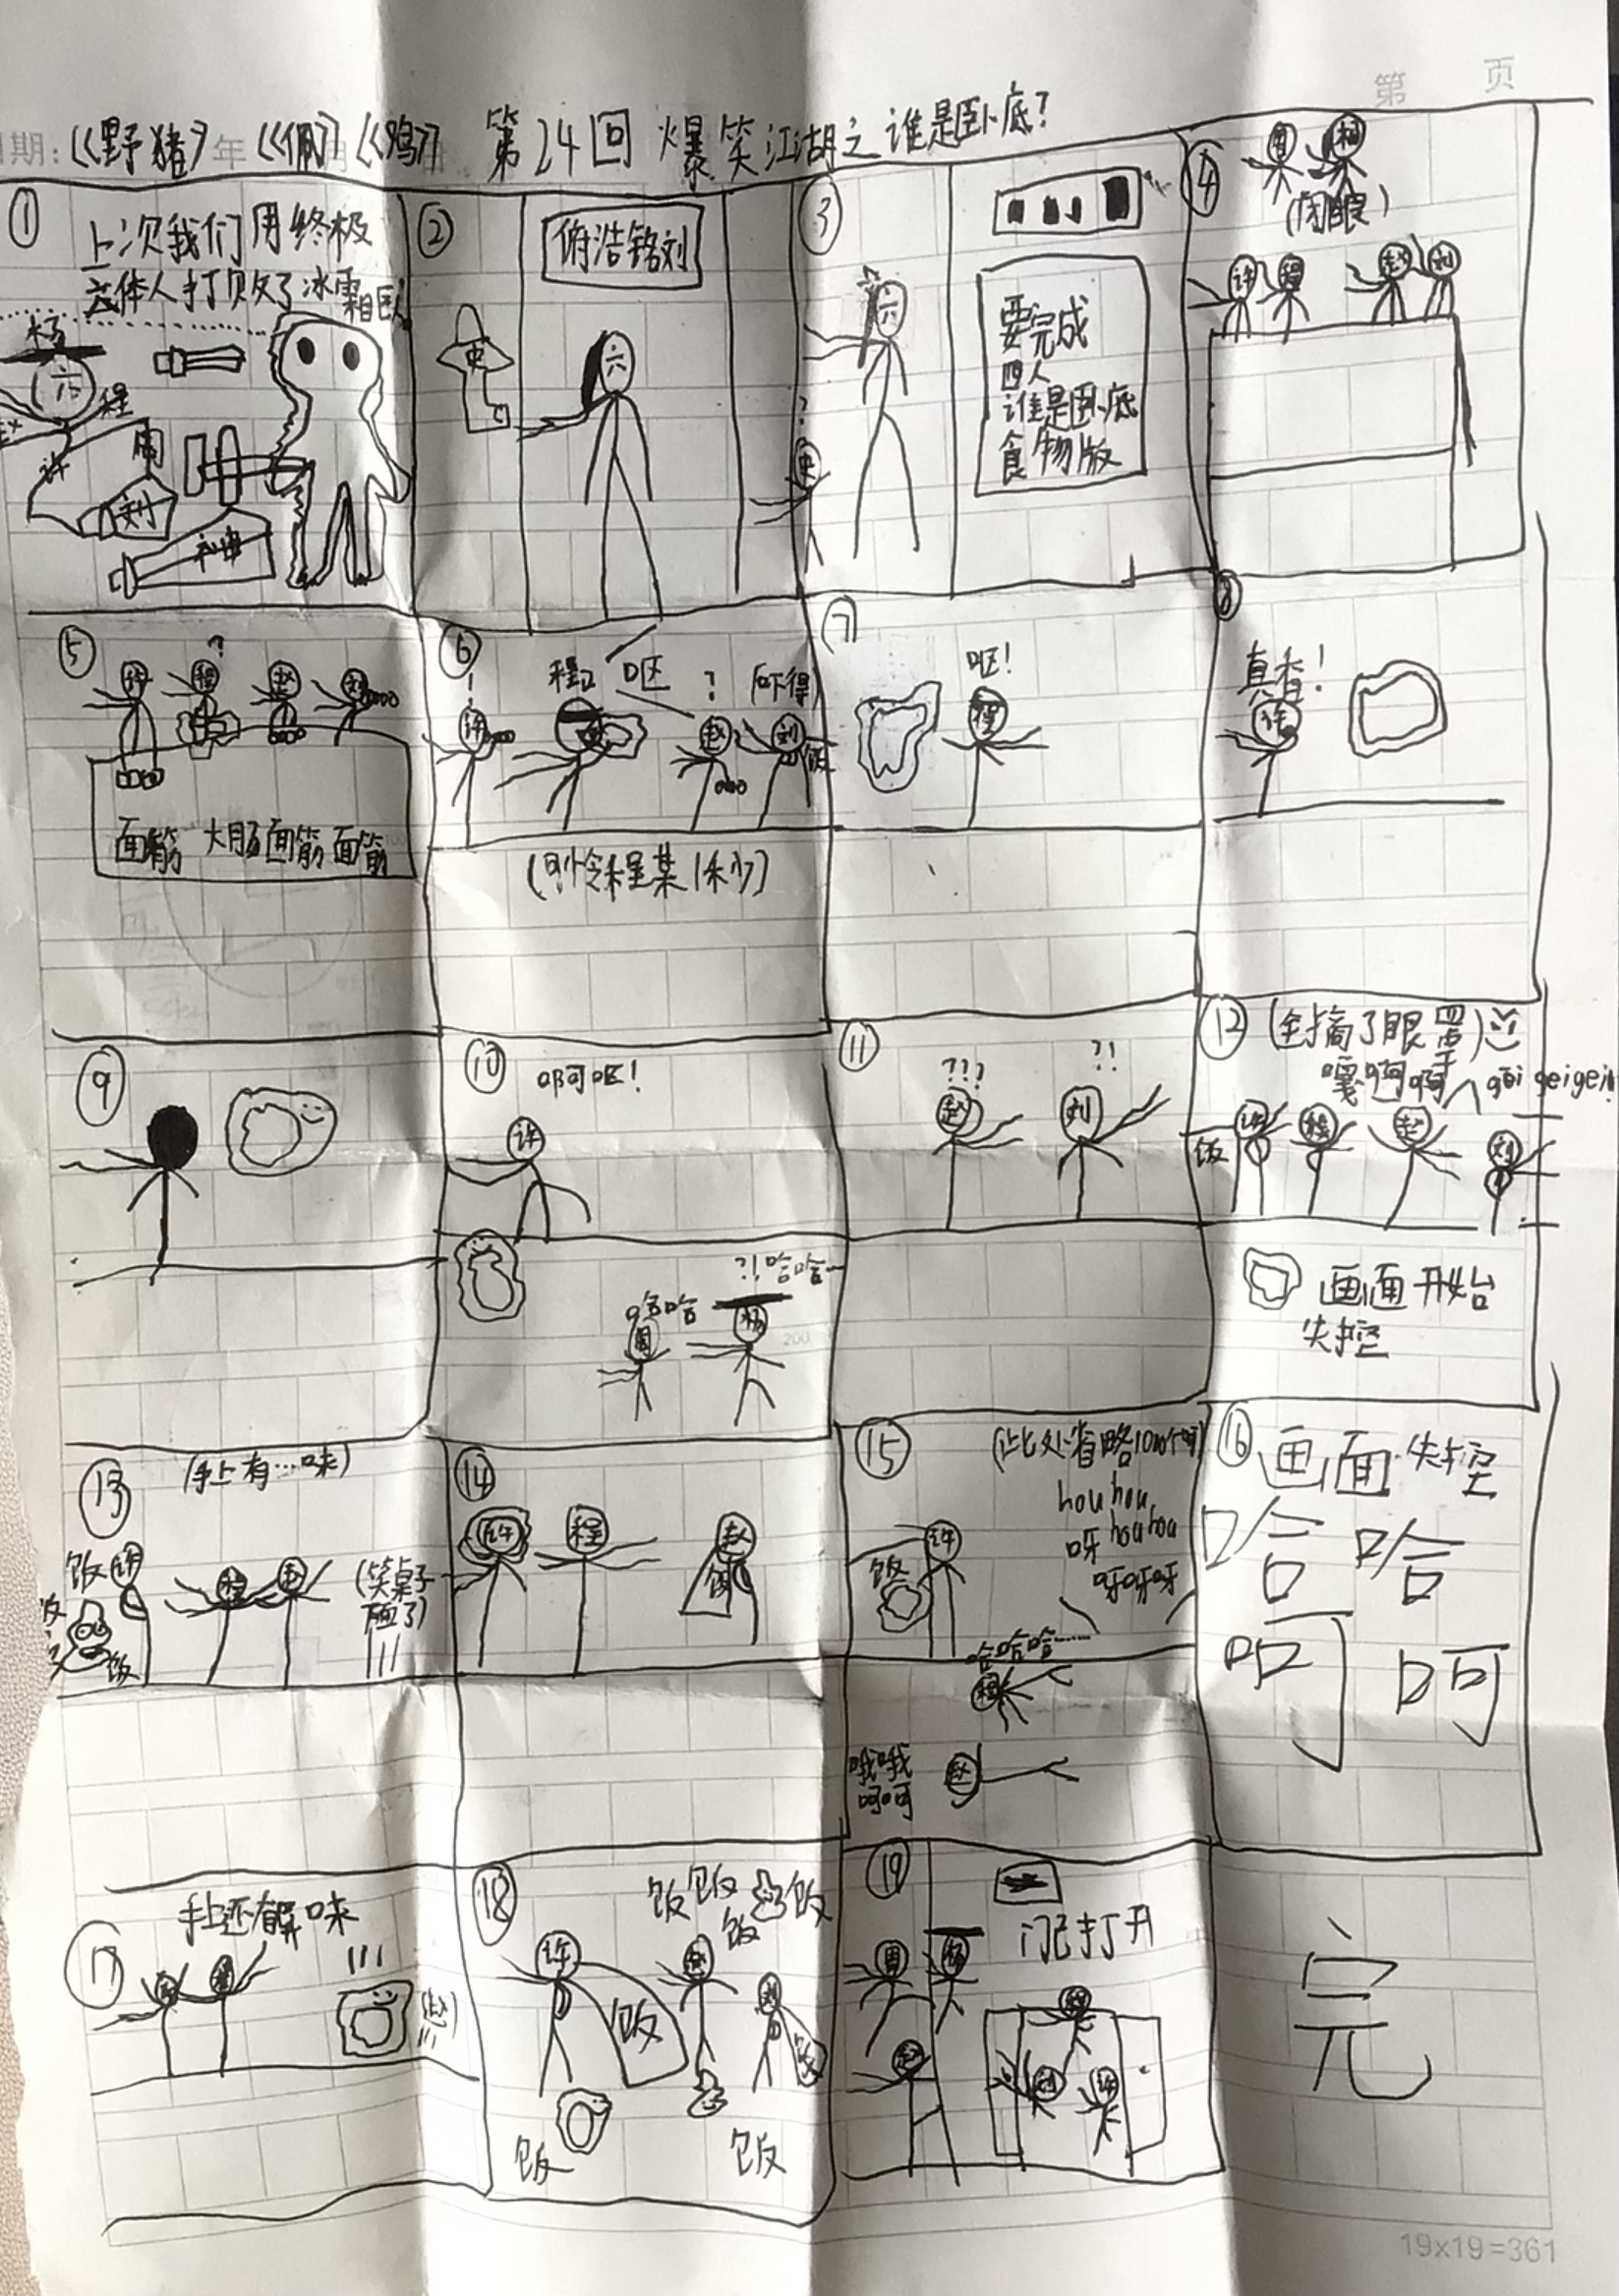 第 页
期: 年
《野猪》 《佩》 《鸡》 第24回 爆笑江湖之谁是卧底?
①
上次我们用终极
六体人打败了冰霜巨人
杨
六
程
赵
许
周
刘
②
俯浩铭刘
史
六
③
六
?
史
要完成
四人
谁是卧底
食物版
④
周 杨
(闭眼)
许 程 赵 刘
⑤
?
许 程 赵 刘
面筋 大肠 面筋 面筋
⑥
! 程: 呕 ? (吓得)
许 赵 刘
饭
(可怜程某1秒)
⑦
呕!
程
⑧
真香!
许
⑨
⑩
啊呕!
许
哈哈
?!哈哈
周 杨
⑪
??? ?!
赵 刘
⑫
(全摘了眼罩)
嘎啊啊 gei geigei!
饭 许 程 赵 刘
画面开始
失控
⑬
(手上有…味)
饭 许
程 赵
(笑桌子
饭
⑭
许 程 赵
饭
⑮
(此处省略1000个呵)
hou hou
呀 hou hou
呀呀呀
许
饭
哈哈哈……
程
哦哦
呵呵
赵
⑯
画面失控
哈哈
呵呵
⑰
手上还有屎味
⑱
饭 饭 饭
饭
许 赵 刘
饭 饭
饭 饭
⑲
门已打开
周 杨
赵
程
刘 许
完
19x19=361